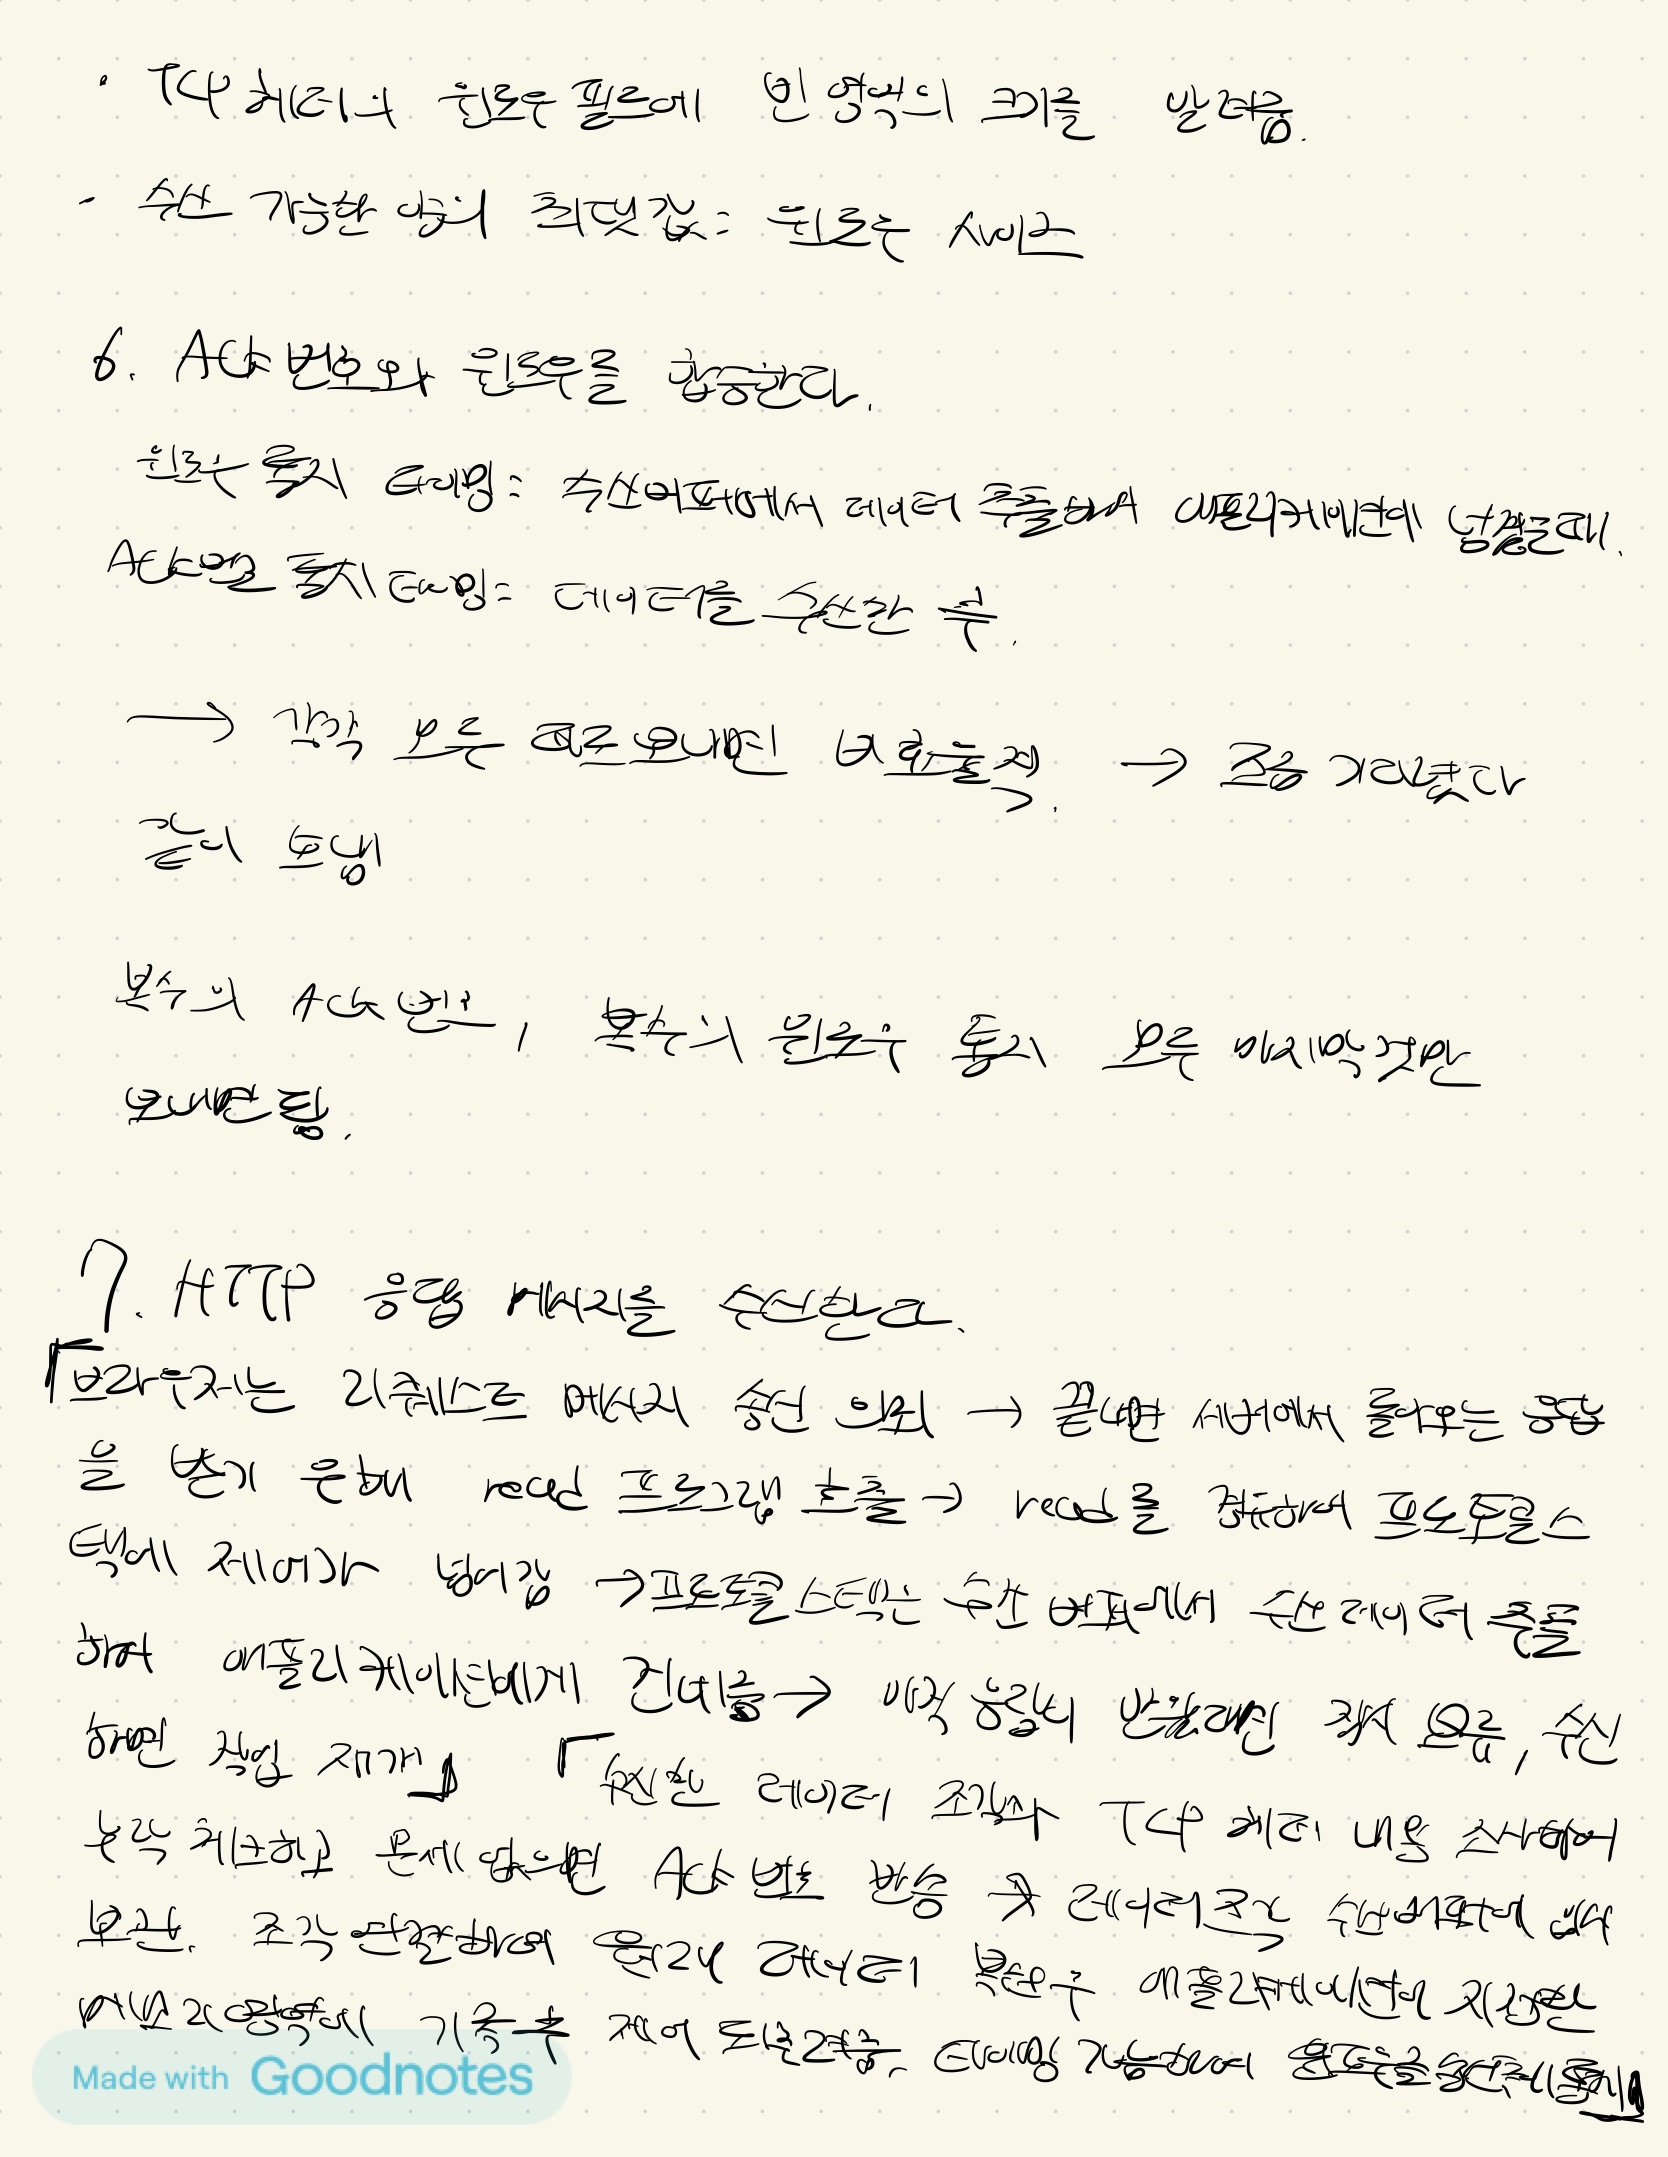 · TCP 헤더의 윈도우 필드에 빈 영역의 크기를 알려줌.
- 수신 가능한 양의 최댓값 = 윈도우 사이즈
6. ACK 번호와 윈도우를 합승한다.
윈도우 통지 타이밍 = 수신버퍼에서 데이터 추출하여 애플리케이션에 넘겼을때.
ACK번호 통지 타이밍 = 데이터를 수신한 후.
→ 각각 모두 따로보내면 비효율적. → 조금 기다렸다
같이 보냄
복수의 ACK 번호, 복수의 윈도우 통지 모두 마지막것만
보내면 됨.
7. HTTP 응답 메시지를 수신한다.
「브라우저는 리퀘스트 메시지 송신 의뢰 → 끝나면 서버에서 돌아오는 응답
을 받기 위해 read 프로그램 호출 → read를 경유하여 프로토콜스
택에 제어가 넘어감 → 프로토콜 스택은 수신 버퍼에서 수신 데이터 추출
하여 애플리케이션에게 건네줌 → 아직 응답이 반환때면 작업 보류, 수신
하면 작업 재개」 「수신한 데이터 조각과 TCP 헤더 내용 조사하여
누락 체크하고 문제 없으면 ACK 번호 반송 후 데이터조각 수신버퍼에 임시
보관. 조각 연결하여 원래 데이터 복원후 애플리케이션이 지정한
메모리영역에 기록 후 제어 되돌려줌. 타이밍 가늠하여 윈도우를 송신측에 통지」
Made with Goodnotes